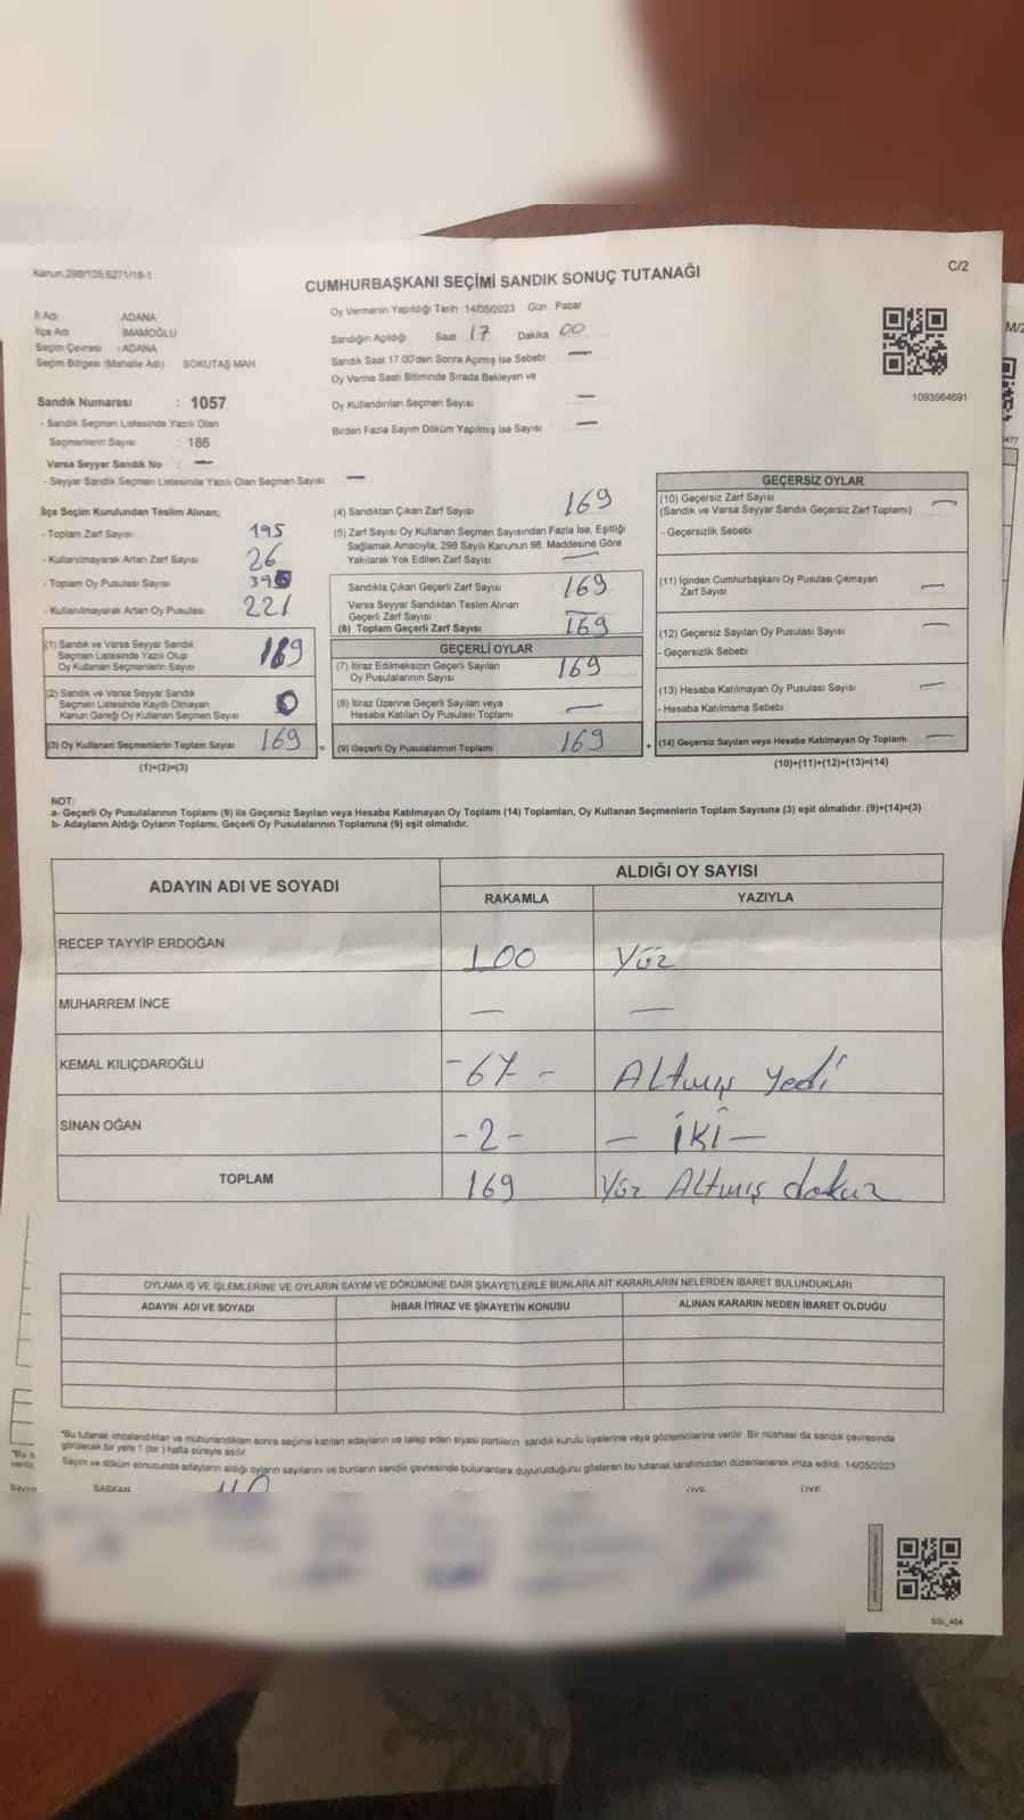 Kanun:298/105,6271/18-1
C/2
CUMHURBAŞKANI SEÇİMİ SANDIK SONUÇ TUTANAĞI
İl Adı ADANA
İlçe Adı İMAMOĞLU
Seçim Çevresi : ADANA
Seçim Bölgesi (Mahalle Adı) SOKUTAŞ MAH
Sandık Numarası : 1057
- Sandık Seçmen Listesinde Yazılı Olan
Seçmenlerin Sayısı : 186
Varsa Seyyar Sandık No : —
- Seyyar Sandık Seçmen Listesinde Yazılı Olan Seçmen Sayısı —
Oy Vermenin Yapıldığı Tarih :14/05/2023 Gün Pazar
Sandığın Açıldığı Saat 17 Dakika 00
Sandık Saat 17.00'den Sonra Açımış İse Sebebi —
Oy Verme Saati Bitiminde Sırada Bekleyen ve
Oy Kullandırılan Seçmen Sayısı —
Birden Fazla Sayım Döküm Yapılmış İse Sayısı —
1093564691
M/2
İlçe Seçim Kurulundan Teslim Alınan;
- Toplam Zarf Sayısı 195
- Kullanılmayarak Artan Zarf Sayısı 26
- Toplam Oy Pusulası Sayısı
- Kullanılmayarak Artan Oy Pusulası 221
(1) Sandık ve Varsa Seyyar Sandık
Seçmen Listesinde Yazılı Olup
Oy Kullanan Seçmenlerin Sayısı 169
(2) Sandık ve Varsa Seyyar Sandık
Seçmen Listesinde Kayıtlı Olmayan
Kanun Gereği Oy Kullanan Seçmen Sayısı 0
(3) Oy Kullanan Seçmenlerin Toplam Sayısı 169 =
(1)+(2)=(3)
(4) Sandıktan Çıkan Zarf Sayısı 169
(5) Zarf Sayısı Oy Kullanan Seçmen Sayısından Fazla İse, Eşitliği
Sağlamak Amacıyla, 298 Sayılı Kanunun 98. Maddesine Göre
Yakılarak Yok Edilen Zarf Sayısı —
Sandıkta Çıkan Geçerli Zarf Sayısı 169
Varsa Seyyar Sandıktan Teslim Alınan
Geçerli Zarf Sayısı —
(6) Toplam Geçerli Zarf Sayısı 169
GEÇERLİ OYLAR
(7) İtiraz Edilmeksizin Geçerli Sayılan
Oy Pusulalarının Sayısı 169
(8) İtiraz Üzerine Geçerli Sayılan veya
Hesaba Katılan Oy Pusulası Toplamı —
(9) Geçerli Oy Pusulalarının Toplamı 169 +
GEÇERSİZ OYLAR
(10) Geçersiz Zarf Sayısı
(Sandık ve Varsa Seyyar Sandık Geçersiz Zarf Toplamı) —
- Geçersizlik Sebebi
(11) İçinden Cumhurbaşkanı Oy Pusulası Çıkmayan
Zarf Sayısı —
(12) Geçersiz Sayılan Oy Pusulası Sayısı —
- Geçersizlik Sebebi
(13) Hesaba Katılmayan Oy Pusulası Sayısı —
- Hesaba Katılmama Sebebi
(14) Geçersiz Sayılan veya Hesaba Katılmayan Oy Toplamı —
(10)+(11)+(12)+(13)=(14)
NOT:
a- Geçerli Oy Pusulalarının Toplamı (9) ile Geçersiz Sayılan veya Hesaba Katılmayan Oy Toplamı (14) Toplamları, Oy Kullanan Seçmenlerin Toplam Sayısına (3) eşit olmalıdır. (9)+(14)=(3)
b- Adayların Aldığı Oyların Toplamı, Geçerli Oy Pusulalarının Toplamına (9) eşit olmalıdır.
ADAYIN ADI VE SOYADI
ALDIĞI OY SAYISI
RAKAMLA YAZIYLA
RECEP TAYYİP ERDOĞAN 100 Yüz
MUHARREM İNCE — —
KEMAL KILIÇDAROĞLU -67- Altmış yedi
SİNAN OĞAN -2- — İKİ —
TOPLAM 169 Yüz Altmış dokuz
OYLAMA İŞ VE İŞLEMLERİNE VE OYLARIN SAYIM VE DÖKÜMÜNE DAİR ŞİKAYETLERLE BUNLARA AİT KARARLARIN NELERDEN İBARET BULUNDUKLARI
ADAYIN ADI VE SOYADI İHBAR İTİRAZ VE ŞİKAYETİN KONUSU ALINAN KARARIN NEDEN İBARET OLDUĞU
"Bu tutanak imzalandıktan ve mühürlendikten sonra seçime katılan adayların ve talep eden siyasi partilerin sandık kurulu üyelerine veya gözlemcilerine verilir. Bir nüshası da sandık çevresinde
görülecek bir yere 1 (bir) hafta süreyle asılır
Sayım ve döküm sonucunda adayların aldığı oyların sayılarını ve bunların sandık çevresinde bulunanlara duyurulduğunu gösteren bu tutanak tarafımızdan düzenlenerek imza edildi. 14/05/2023
BAŞKAN ÜYE ÜYE